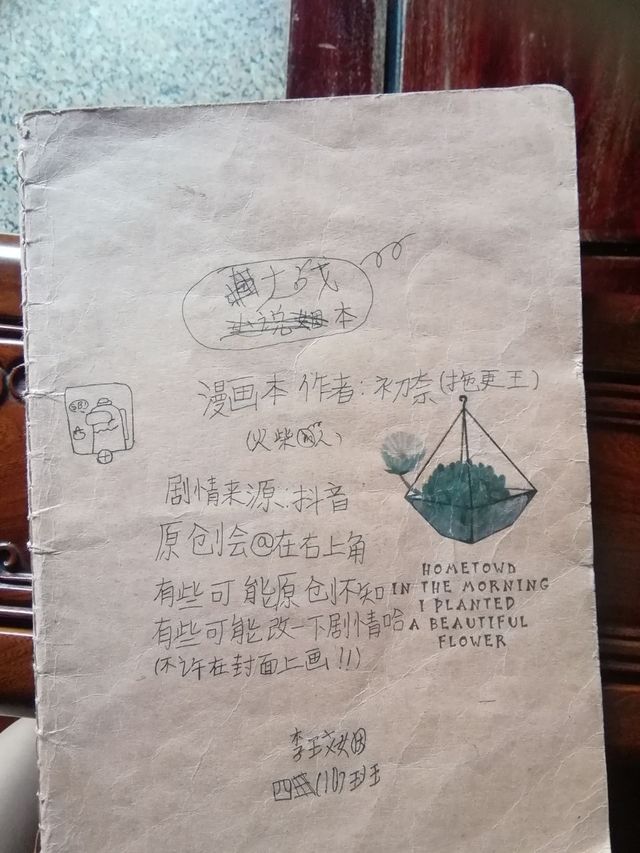 大战
本
漫画本 作者:初奈(拖更王)
(火柴人)
剧情来源:抖音
原创会@在右上角
有些可能原创不知
有些可能改一下剧情哈
(不许在封面上画!!)
HOMETOWD
IN THE MORNING
I PLANTED
A BEAUTIFUL
FLOWER
李
四(10)班